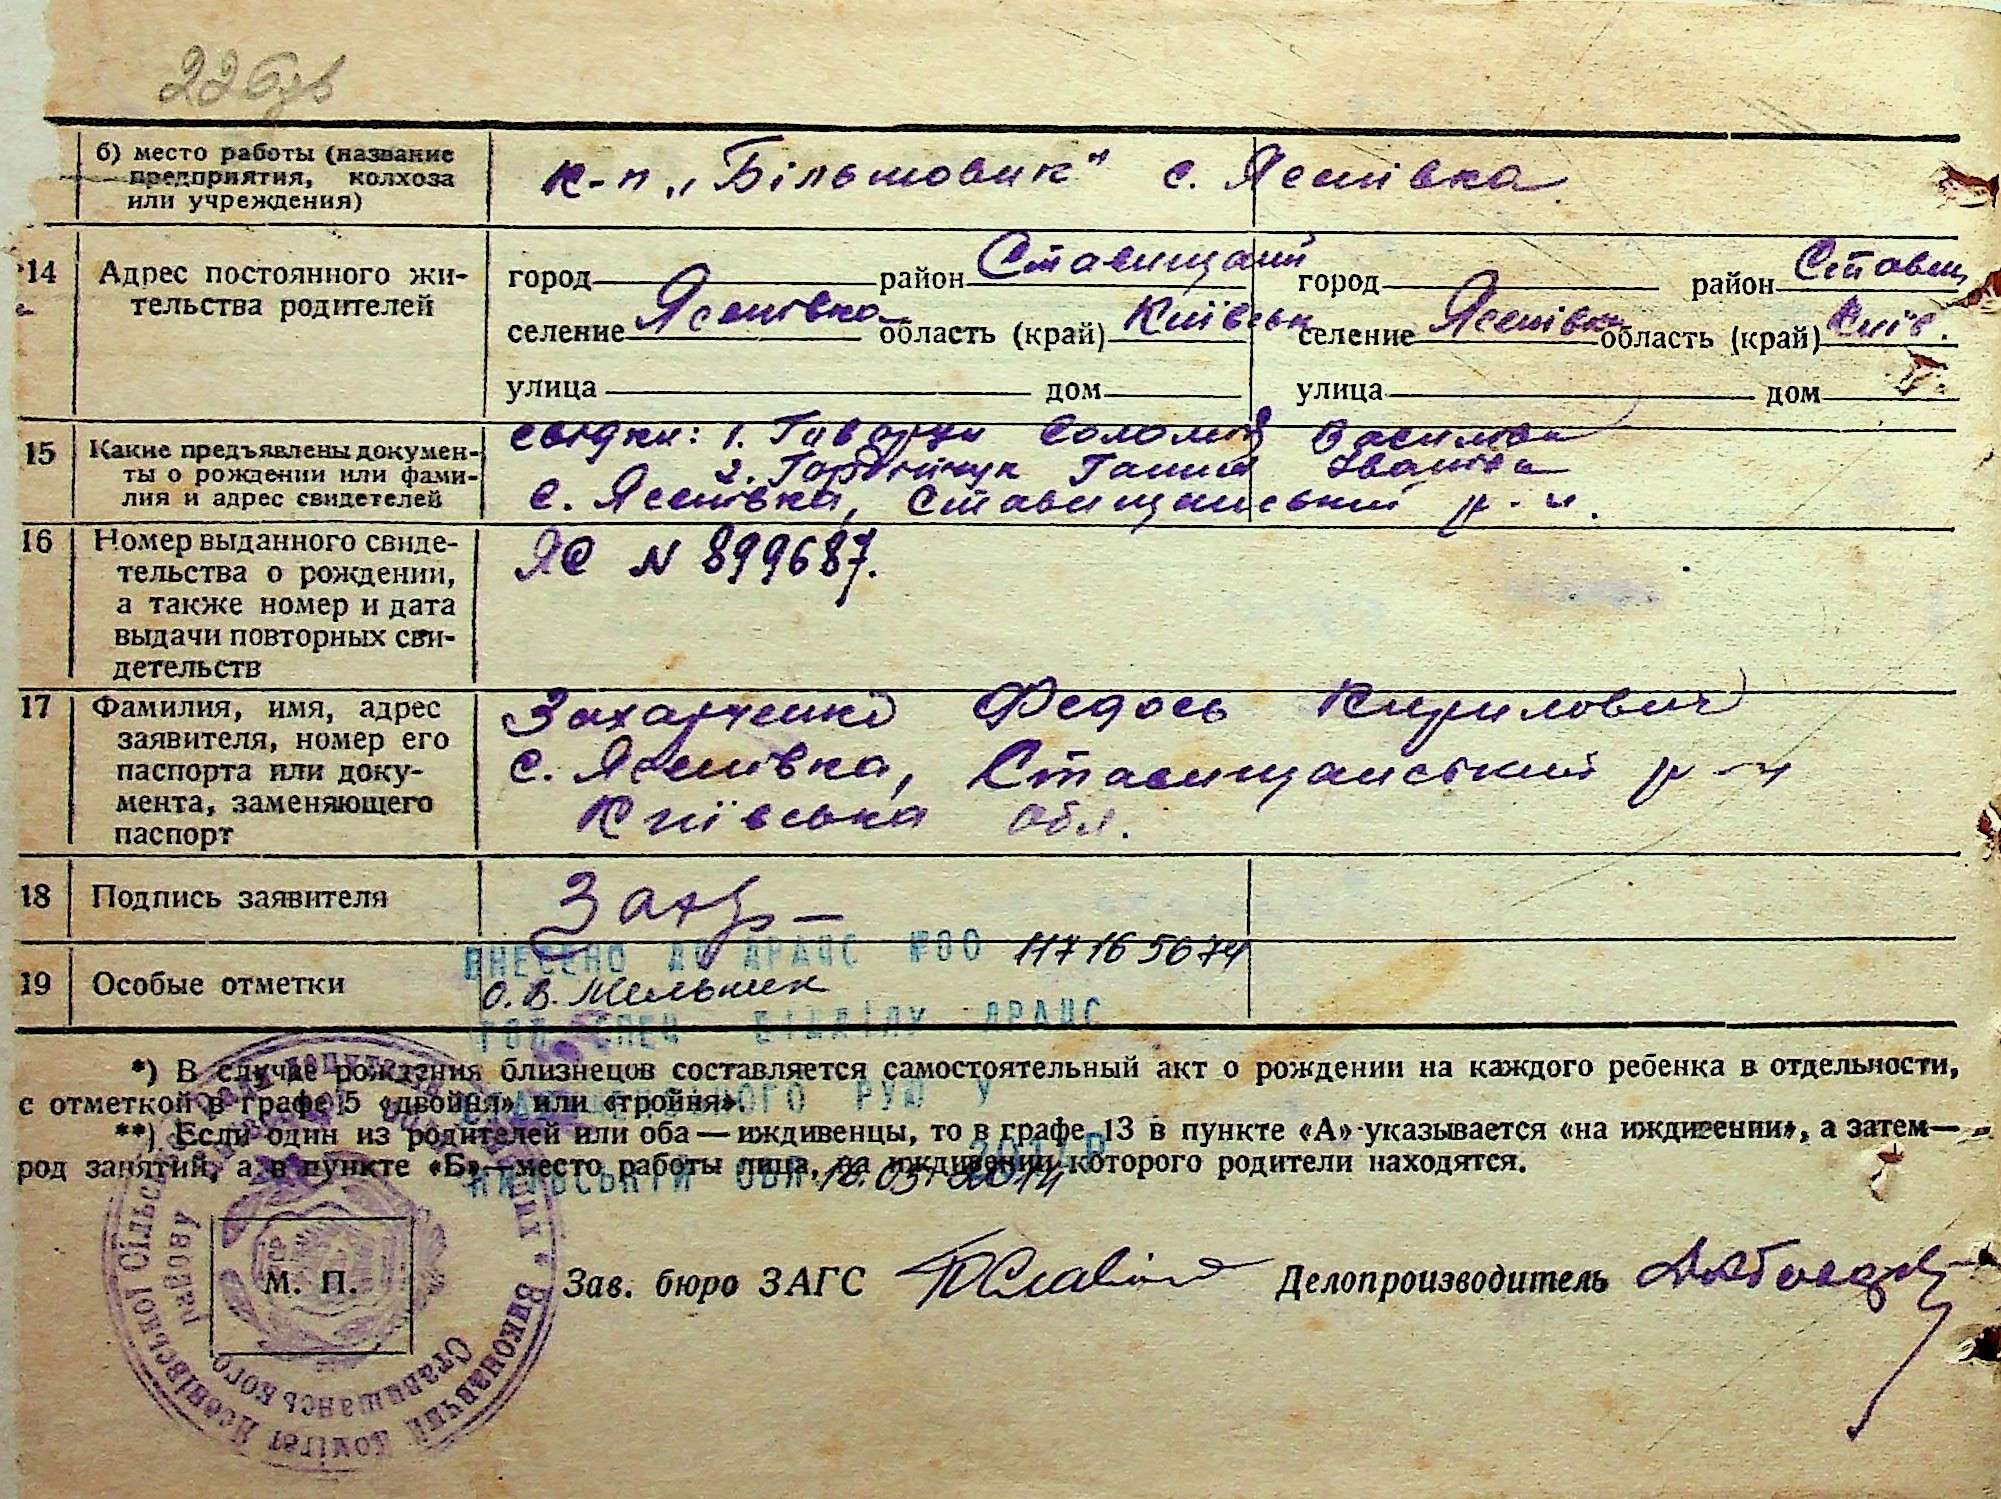 б) место работы (название
предприятия, колхоза
или учреждения)
к-п „Більшовик" с. Яснівка
14 Адрес постоянного жи-
тельства родителей
город район Ставищан город район Ставищ
селение Яснівка область (край) Київськ селение Яснівка область (край) Київ.
улица дом улица дом
15 Какие предъявлены докумен-
ты о рождении или фами-
лия и адрес свидетелей
свідки: 1. Соломія Василівн
2. Ганна Іванівн
с. Яснівка, Ставищанський р-н.
16 Номер выданного свиде-
тельства о рождении,
а также номер и дата
выдачи повторных сви-
детельств
ЯС N 899687.
17 Фамилия, имя, адрес
заявителя, номер его
паспорта или доку-
мента, заменяющего
паспорт
Захарченко Федось Кирилович
с. Яснівка, Ставищанський р-н
Київська обл.
18 Подпись заявителя
Зах
ВНЕСЕНО ДО ДРАЦС №00 117165674
19 Особые отметки
О.В. Мельник
ГОЛ СПЕЦ ВІДДІЛУ ДРАЦС
*) В случае рождения близнецов составляется самостоятельный акт о рождении на каждого ребенка в отдельности,
с отметкой в графе 5 «двойня» или «тройня».
СТАВИЩАНСЬКОГО РУЮ У
**) Если один из родителей или оба — иждивенцы, то в графе 13 в пункте «А» указывается «на иждивении», а затем —
род занятий, а в пункте «Б» — место работы лица, на иждивении которого родители находятся.
КИЇВСЬКІЙ ОБЛ. 2014
М. П.
Зав. бюро ЗАГС
Делопроизводитель
Виконавчий Комітет
Ставищанського району